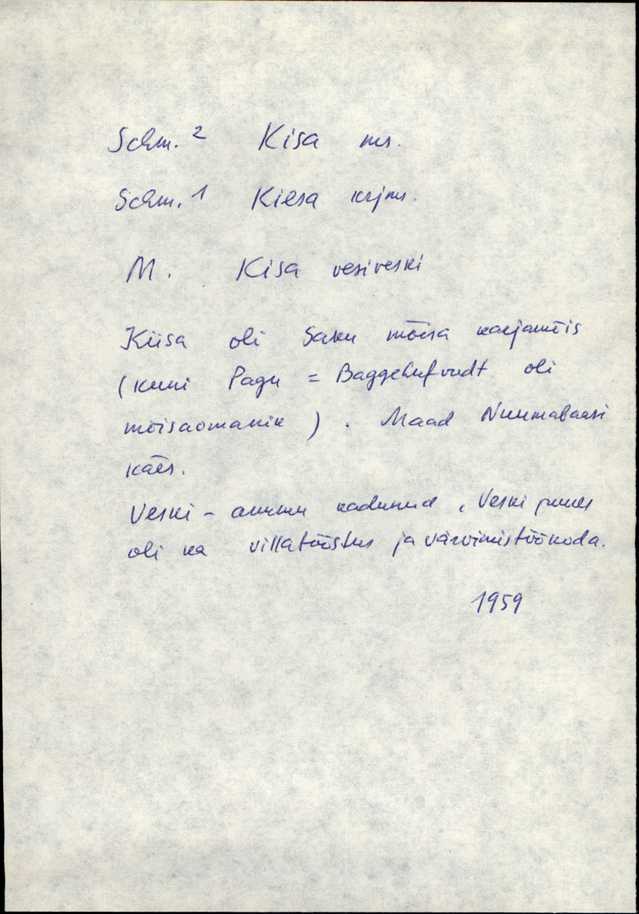 Schm. 2 Kisa ms.
Schm. 1 Kiesa krjms.
M. Kisa vesiveski
Kiisa oli Saku mõisa karjamõis
(kuni Pagu = Baggehufvudt oli
mõisaomanik). Maad Nuumabaasi
käes.
Veski - ammu kadunud, Veski juures
oli ka villatööstus ja värvimistöökoda.
1959